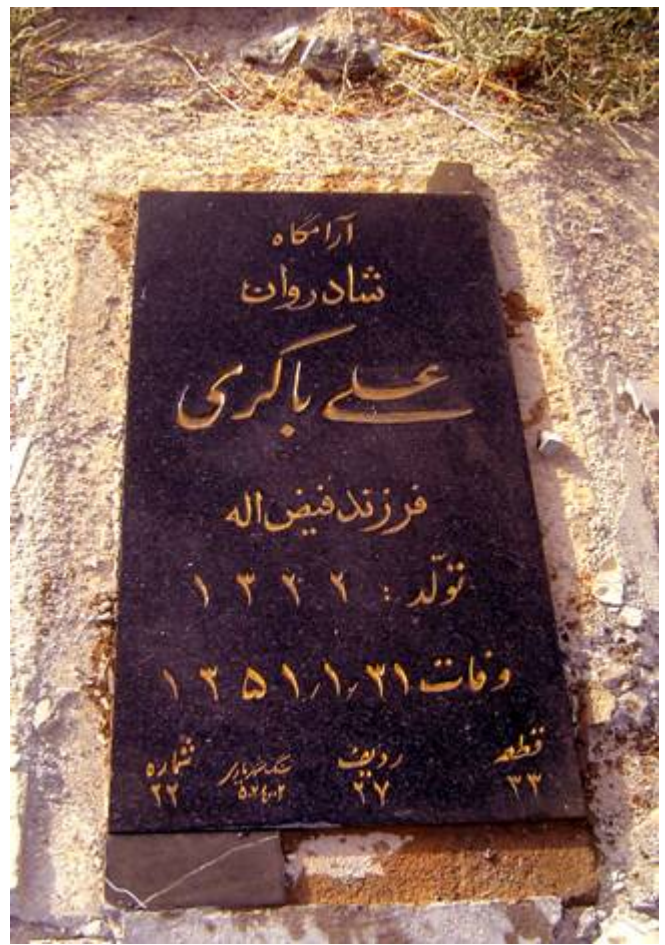 آرامگاه
شادروان
علی باکری
فرزند فیض اله
تولّد : ۱۳۲۲
وفات ۱۳۵۱/۱/۳۱
قطعه ردیف شماره
۳۳ ۲۷ ۲۲